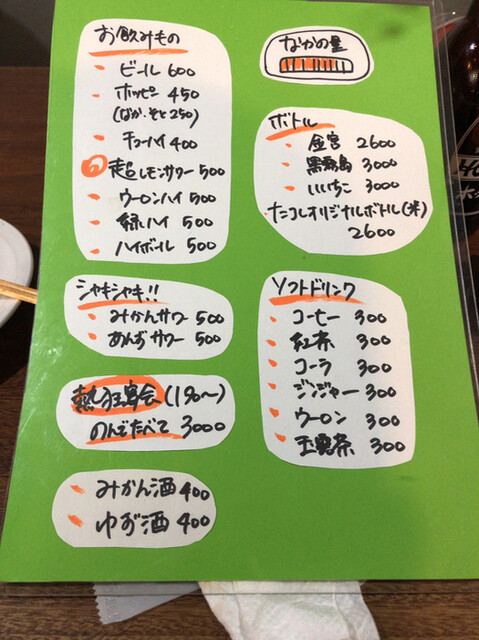 お飲みもの
ビール 600
ホッピー 450
(なか・そと250)
チューハイ 400
超レモンサワー 500
ウーロンハイ 500
緑ハイ 500
ハイボール 500
シャキシャキ!!
みかんサワー 500
あんずサワー 500
熱狂宴会(180〜)
のんでたべて 3000
みかん酒 400
ゆず酒 400
なかの量
ボトル
金宮 2600
黒霧島 3000
いいちこ 3000
たこしオリジナルボトル(米)
2600
ソフトドリンク
コーヒー 300
紅茶 300
コーラ 300
ジンジャー 300
ウーロン 300
玉露茶 300